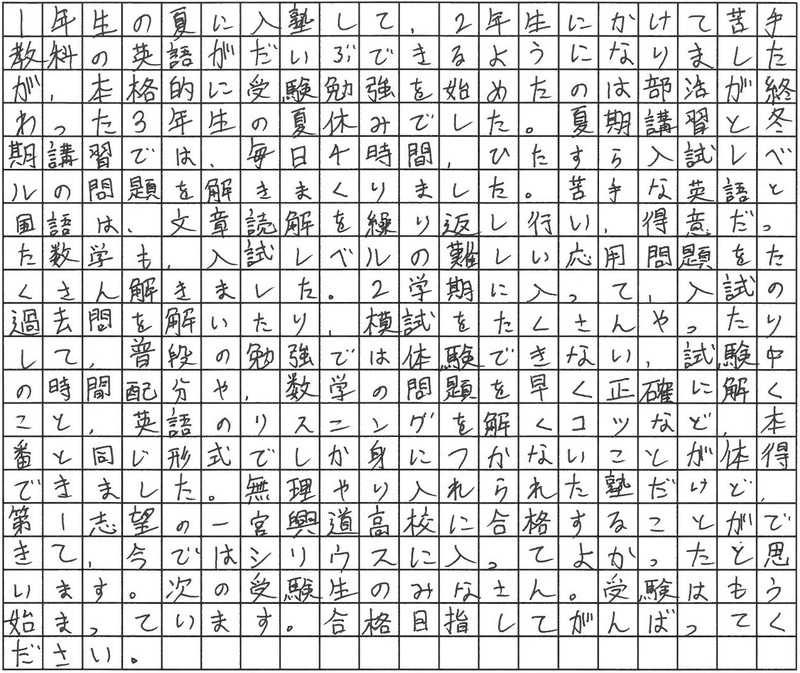 1年生の夏に入塾して、2年生にかけて苦手
教科の英語がだいぶできるようになりました
が、本格的に受験勉強を始めたのは部活が終
わった3年生の夏休みでした。夏期講習と冬
期講習では、毎日4時間、ひたすら入試レベ
ルの問題を解きまくりました。苦手な英語と
国語は、文章読解を繰り返し行い、得意だっ
た数学も、入試レベルの難しい応用問題をた
くさん解きました。2学期に入って、入試の
過去問を解いたり、模試をたくさんやったり
して、普段の勉強では体験できない、試験中
の時間配分や、数学の問題を早く正確に解く
こと、英語のリスニングを解くコツなど、本
番と同じ形式でしか身につかないことが体得
できました。無理やり入れられた塾だけど、
第1志望の一宮興道高校に合格することがで
きて、今ではシリウスに入ってよかったと思
います。次の受験生のみなさん。受験はもう
始まっています。合格目指してがんばってく
ださい。